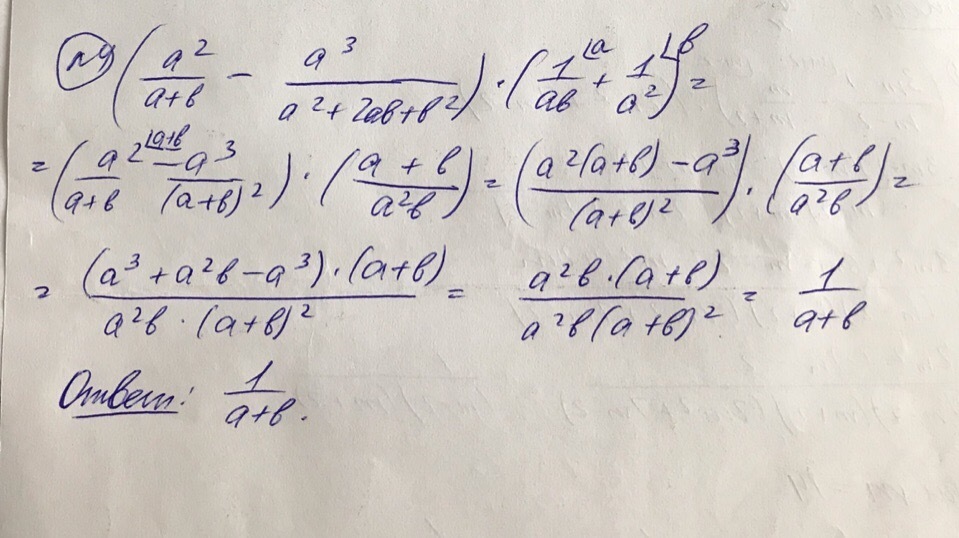 №9 (a²/(a+b) − a³/(a²+2ab+b²)) · (1/ab + 1/a²) = 
= (a²/(a+b) − a³/(a+b)²) · ((a+b)/a²b) = ((a²(a+b) − a³)/(a+b)²) · ((a+b)/a²b) =
= ((a³+a²b−a³)·(a+b))/(a²b·(a+b)²) = (a²b·(a+b))/(a²b(a+b)²) = 1/(a+b)
Ответ: 1/(a+b).